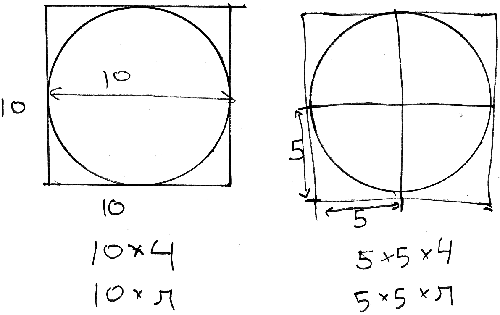 10
10
10
10×4
10×π
5
5
5×5×4
5×5×π